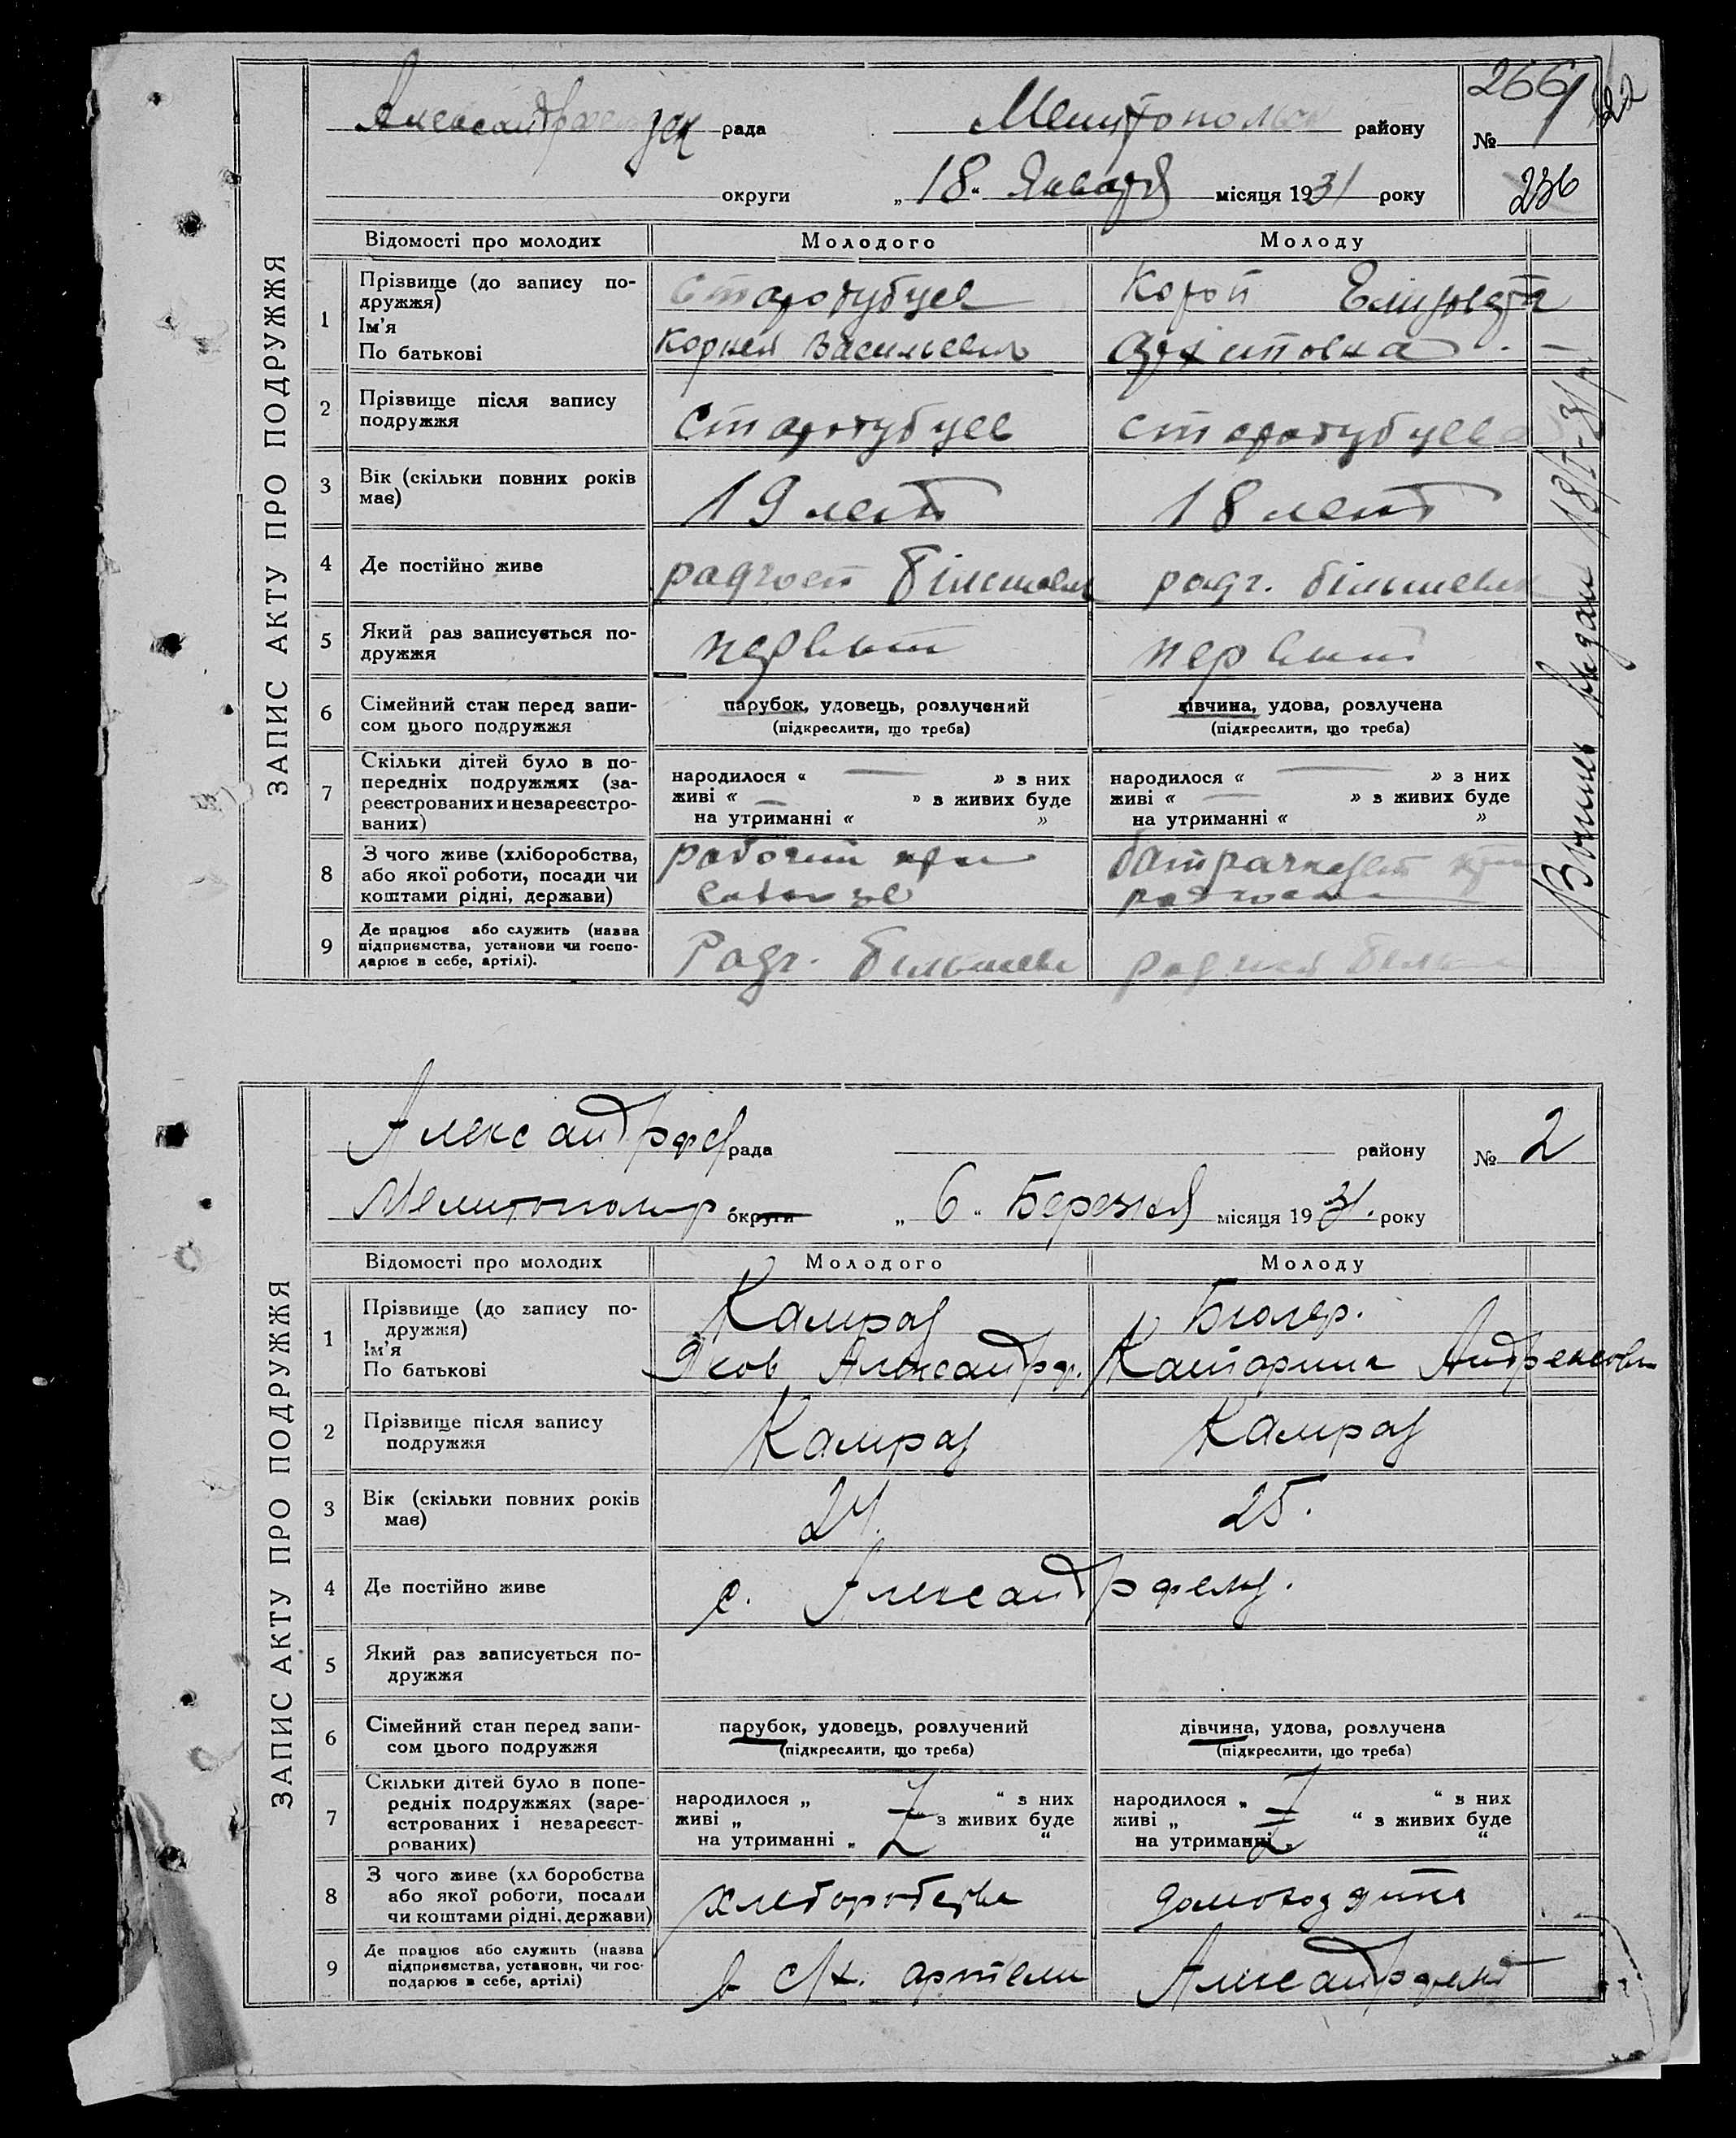 266
1
236
рада Мелитопольс району №
округи „18“ Января місяця 1931 року
ЗАПИС АКТУ ПРО ПОДРУЖЖЯ
Відомості про молодих Молодого Молоду
1 Прізвище (до запису по-
дружжя)
Ім'я
По батькові
Стародубцев
Корней Васильевич
Короп Елизовета
Архиповна
2 Прізвище після запису
подружжя
Стародубцев Стародубцева
3 Вік (скільки повних років
має)
19 лет 18 лет
4 Де постійно живе
радгосп Більшевик радг. більшевик
5 Який раз записується по-
дружжя
первый первый
6 Сімейний стан перед запи-
сом цього подружжя
парубок, удовець, розлучений
(підкреслити, що треба)
дівчина, удова, розлучена
(підкреслити, що треба)
7 Скільки дітей було в по-
передніх подружжях (за-
реєстрованих и незареєстро-
ваних)
народилося « » з них
живі « » з живих буде
на утриманні « »
народилося « » з них
живі « » з живих буде
на утриманні « »
8 З чого живе (хліборобства,
або якої роботи, посади чи
коштами рідні, держави)
рабочий при
9 Де працює або служить (назва
підприємства, установи чи госпо-
дарює в себе, артілі).
Радг. Більшевик
18/I-31 р.
ЗАПИС АКТУ ПРО ПОДРУЖЖЯ
рада району № 2
Мелитопольр. округи „6“ Березня місяця 1931. року
Відомості про молодих Молодого Молоду
1 Прізвище (до запису по-
дружжя)
Ім'я
По батькові
Камрад
Яков Александр.
Бюлер.
Катарина Андреевна
2 Прізвище після запису
подружжя
Камрад Камрад
3 Вік (скільки повних років
має)
24. 25.
4 Де постійно живе
с. Александрфельд.
5 Який раз записується по-
дружжя
6 Сімейний стан перед запи-
сом цього подружжя
парубок, удовець, розлучений
(підкреслити, що треба)
дівчина, удова, розлучена
(підкреслити, що треба)
7 Скільки дітей було в попе-
редніх подружжях (заре-
єстрованих і незареєст-
рованих)
народилося „ “ з них
живі „ з живих буде
на утриманні „ “
народилося „ “ з них
живі „ “ з живих буде
на утриманні „ “
8 З чого живе (хл боробства
або якої роботи, посади
чи коштами рідні, держави)
хлеборобства
9 Де працює або служить (назва
підприємства, установи, чи гос-
подарює в себе, артілі)
в с/х. артели Александрфельд